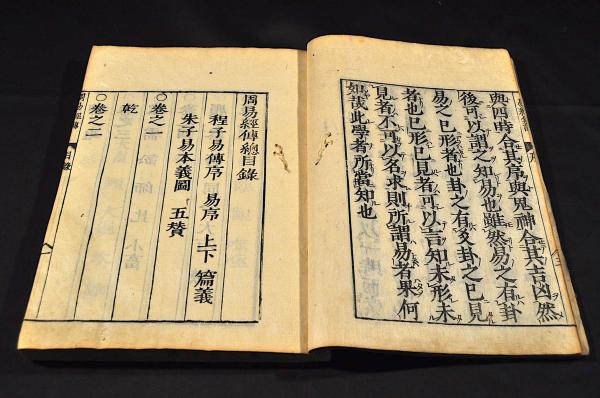 與四時合其序與鬼神合其吉凶然
後可以謂之知易也雖然易之有卦
易之已形者也卦之有爻卦之已見
者也已形已見者可以言知未形未
見者不可以名求則所謂易者果何
如哉此學者所當知也
周易經傳總目錄
程子易傳序 易序 上下篇義
朱子易本義圖 五贊
○卷之一
乾
○卷之二